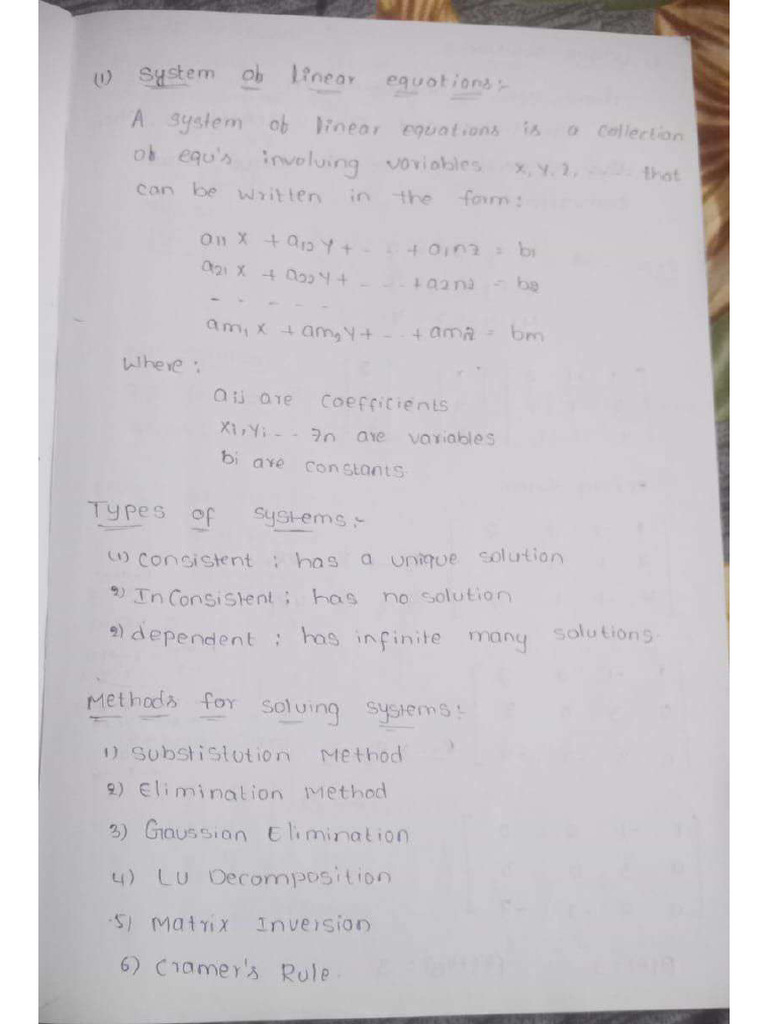 (1) System ob linear equations:-
A system ob linear equations is a collection
ob equ's involving variables x, y, z, ..... that
can be written in the form:
a11 x + a12 y + - .. + a1n z = b1
a21 x + a22 y + - - .. + a2n z = b2
- - - - -
am1 x + am2 y + - .. + am z = bm
Where :
aij are coefficients
xi, yi - - - zn are variables
bi are constants
Types of systems:-
(1) Consistent : has a unique solution
2) InConsistent : has no solution
2) dependent : has infinite many solutions.
Methods for solving systems:-
1) Substistution Method
2) Elimination Method
3) Gaussian Elimination
4) LU Decomposition
5) Matrix Inversion
6) Cramer's Rule.